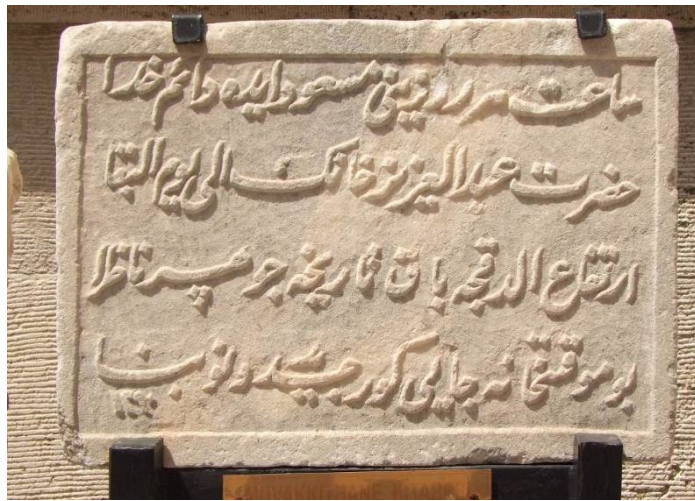 ساعت هر روزینی مسعود ایده دائم خدا
حضرت عبدالعزیز خانك الی یوم البقا
ارتفاع الدقجه باق تاریخه جوهر ناظرا
بو موقتخانه جایی نو بنا